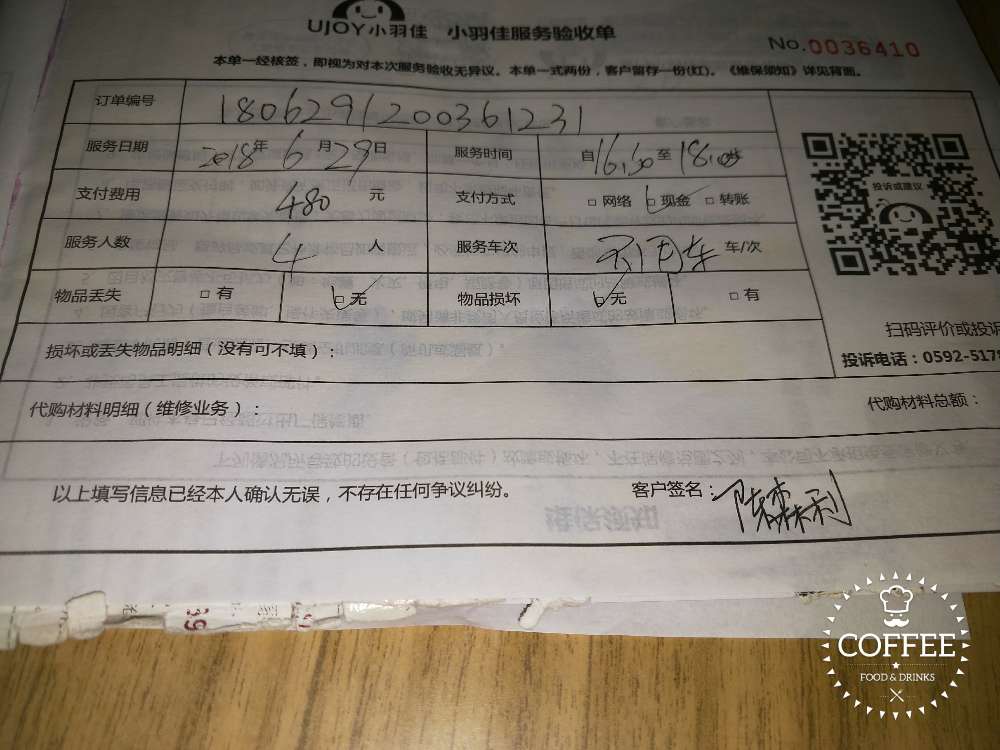 UJOY小羽佳 小羽佳服务验收单
No.0036410
本单一经核签，即视为对本次服务验收无异议。本单一式两份，客户留存一份(红)。《维保须知》详见背面。
订单编号 1806291200361231
服务日期 2018年6月29日 服务时间 自16:30至18:00时
支付费用 480 元 支付方式 □ 网络 □ 现金 □ 转账
投诉或建议
服务人数 4 人 服务车次 不用车 车/次
物品丢失 □ 有 □ 无 物品损坏 □ 无 □ 有
扫码评价或投诉
损坏或丢失物品明细（没有可不填）：
投诉电话：0592-517
代购材料明细（维修业务）：
代购材料总额：
以上填写信息已经本人确认无误，不存在任何争议纠纷。
客户签名：陈森利
COFFEE
FOOD & DRINKS